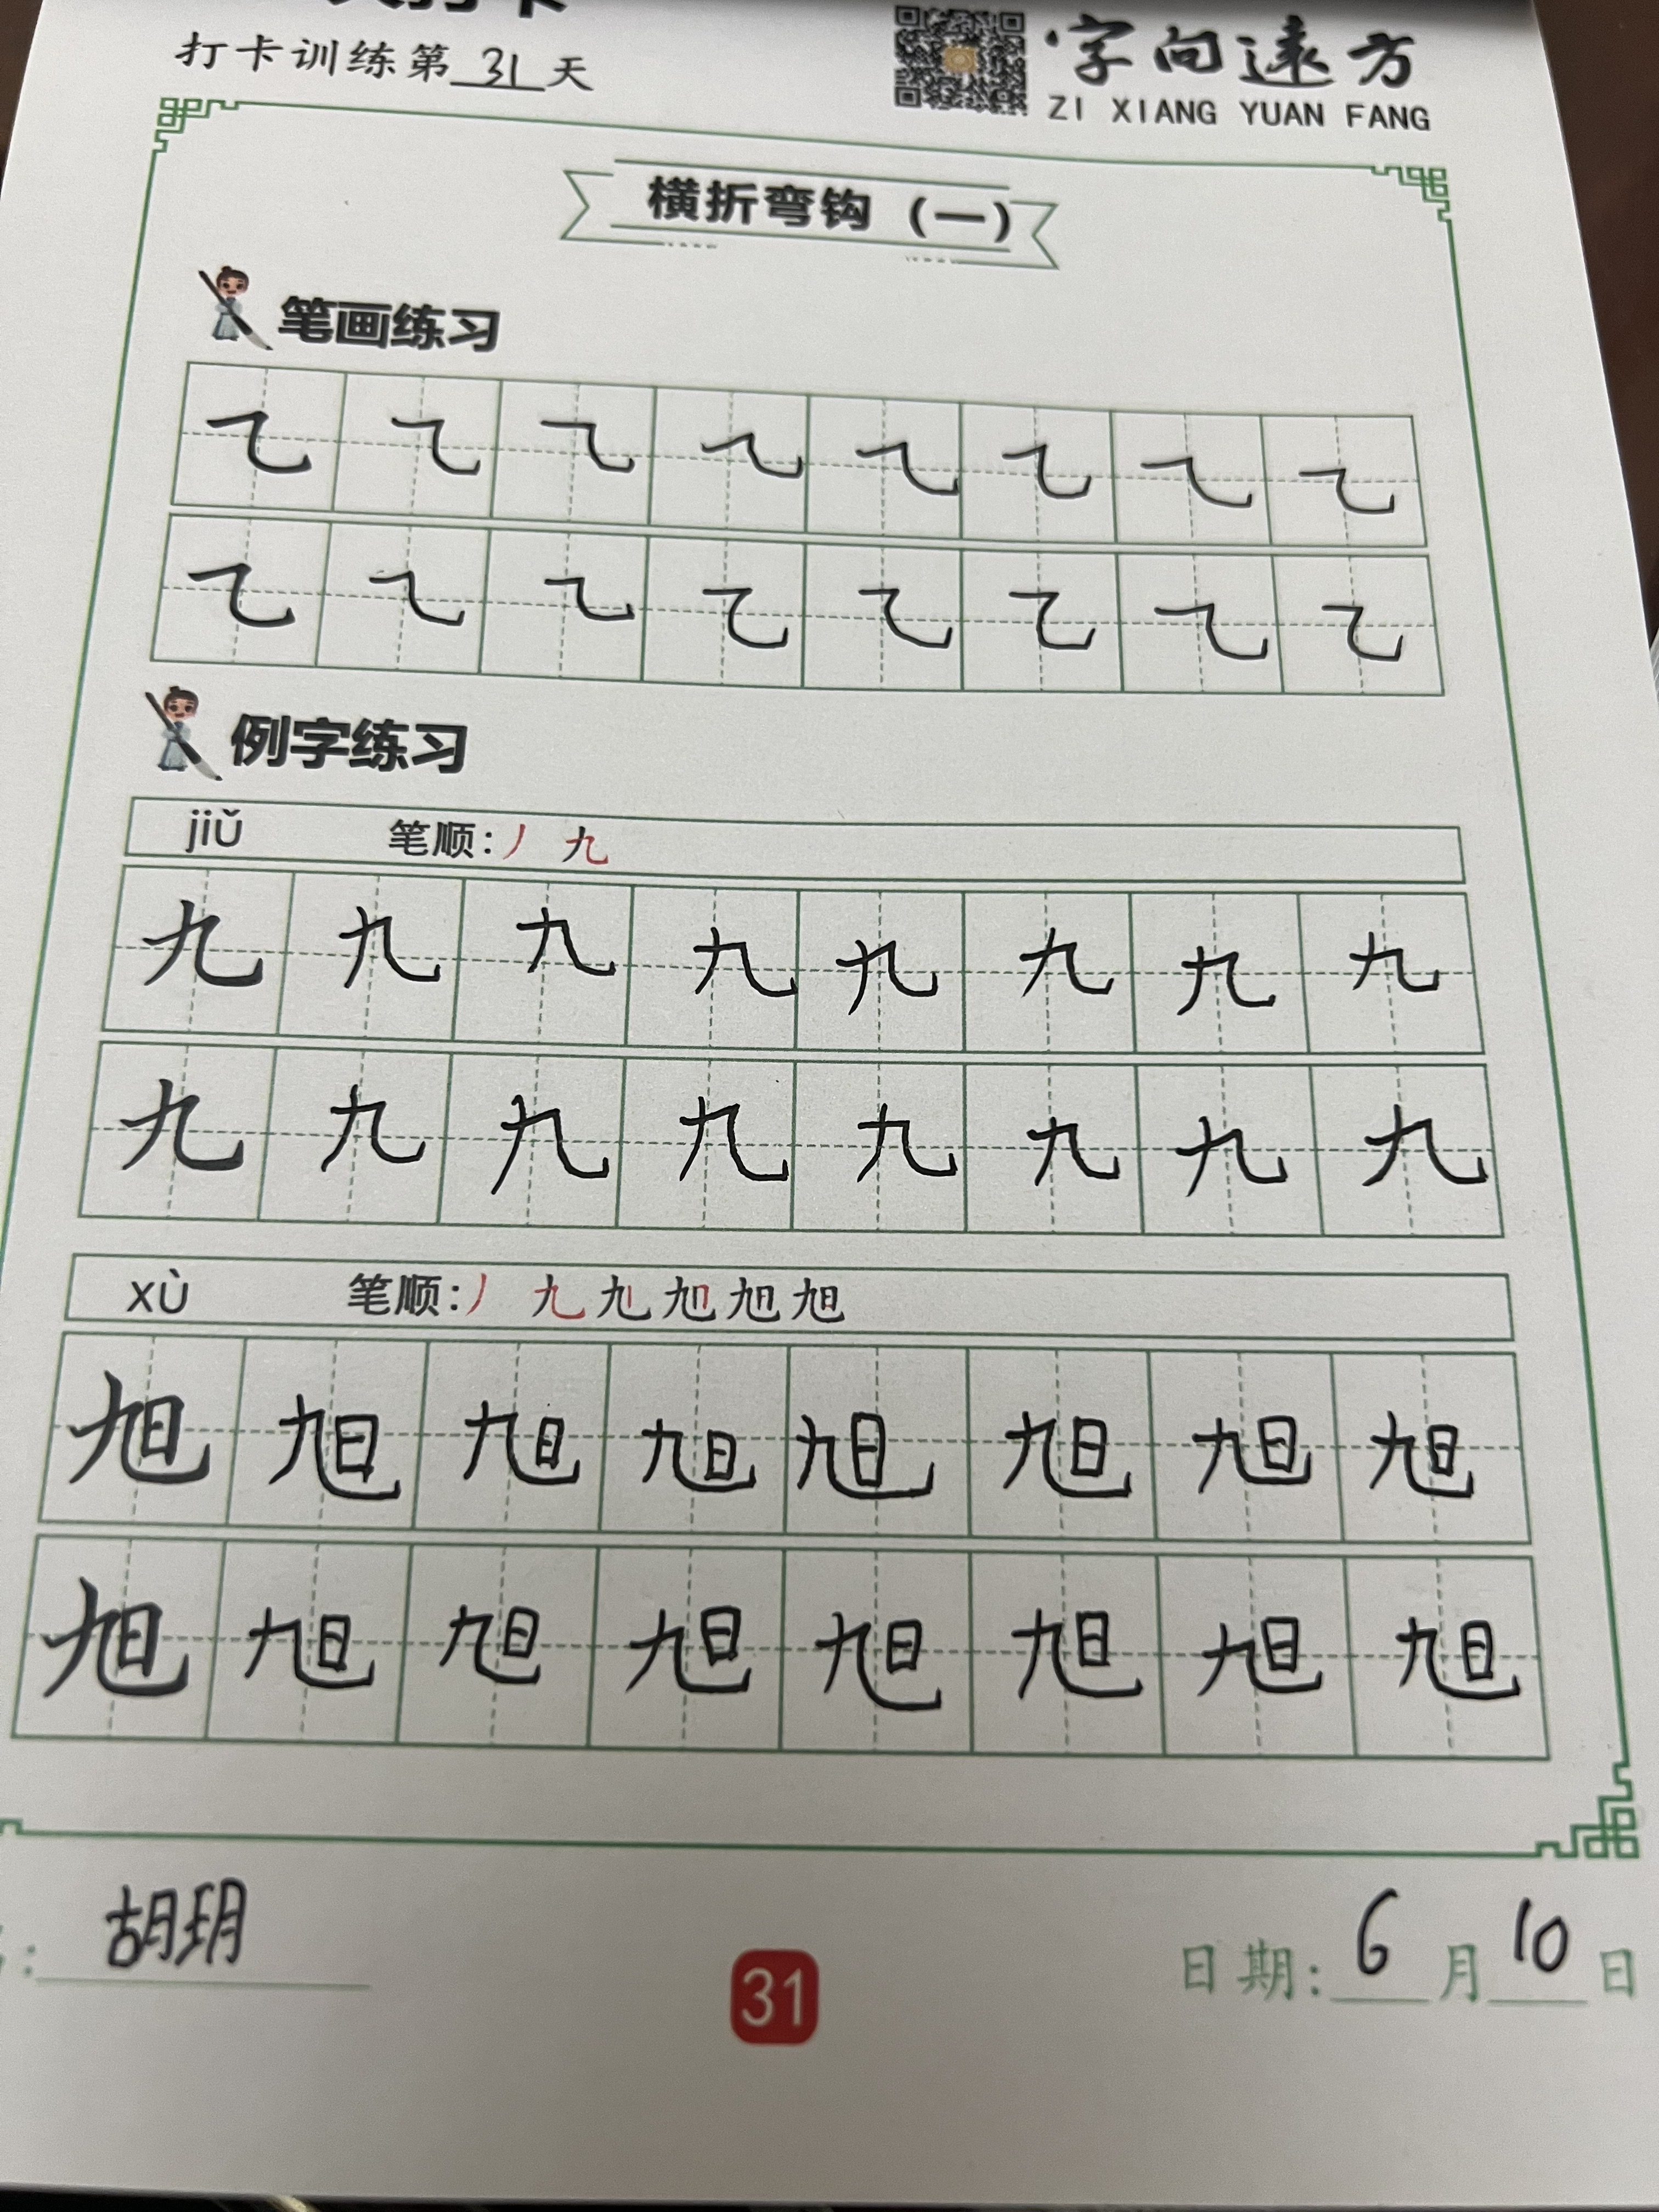 打卡训练第31天
字向遠方
ZI XIANG YUAN FANG
横折弯钩（一）
笔画练习
例字练习
jiǔ 笔顺:丿 九
九 九 九 九 九 九 九 九
九 九 九 九 九 九 九 九
xù 笔顺:丿 九 旭
旭 旭 旭 旭 旭 旭 旭 旭
旭 旭 旭 旭 旭 旭 旭 旭
胡玥
日期:6月10日
31